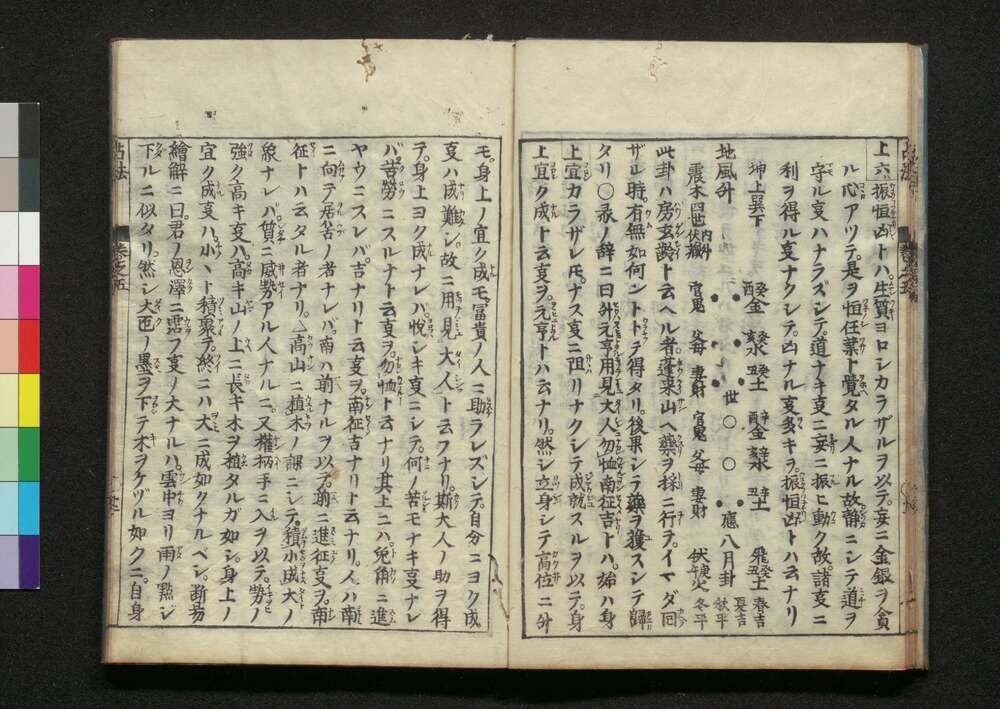 上六振恒凶トハ生質ヨロシカラザルヲ以テ妄ニ金銀ヲ貪
ル心アツテ是ヲ恒任業ト覚タル人ナル故静ニシテ道ヲ
守ル㕝ハナラズシテ道ナキ㕝ニ妄ニ振ヒ動ク故諸㕝ニ
利ヲ得ル㕝ナクシテ凶ナル㕝多キヲ振恒凶トハ云ナリ
坤上巽下 酉癸金 亥癸水 丑癸土 酉辛金 亥辛水 丑辛土 飛癸丑土 春吉
地風升 世 應 八月卦 夏吉 秋平
震木四世伏蔵 内外 官鬼 父母 妻財 官鬼 父母 妻財 伏庚午火 冬平
此卦ハ房玄齢ト云ヘル者蓬莱山ヘ藥ヲ採ニ行テイマダ回
ザル時有無如何ントトテ得タリ後果シテ藥ヲ獲スシテ歸
タリ○彖ノ辞ニ曰升元亨用見大人勿恤南征吉トハ始ハ身
上宜カラザレ𪜈ナス㕝ニ阻リナクシテ成就スルヲ以テ身
上宜ク成ト云㕝ヲ元亨トハ云ナリ然シ立身シテ高位ニ升
モ身上ノ宜ク成モ冨貴ノ人ニ助ラレズシテ自分ニヨク成
㕝ハ成難シ故ニ用見大人ト云フナリ斯大人ノ助ヲ得
テ身上ヨク成ナレバ悦シキ㕝ニシテ何ノ苦モナキ㕝ナレ
バ苦勞ニスルナト云㕝ヲ勿恤ト云ナリ其上ニハ兎角ニ進
ヤウニスレバ吉ナリト云㕝ヲ南征吉ナリト云ナリ人ハ南
ニ向テ居苦ノ者ナレバ南ハ前ナルヲ以テ前ニ進征㕝ヲ南
征トハ云タル者ナリ△高山ニ植木ノ課ニシテ積小成大ノ
象ナレバ質ニ威勢アル人ナルニ又權柄手ニ入ヲ以テ勢ノ
強ク高キ㕝ハ高キ山ノ上ニ長キ木ヲ植タルガ如シ身上ノ
宜ク成㕝ハ小ヽト積聚テ終ニハ大ニ成如クナルベシ断易
繪解ニ曰君ノ恩澤ニ霑フ㕝ノ大ナルハ雲中ヨリ雨ノ點シ
下ルニ似タリ然シ大匠ノ墨ヲ下テ木ヲケヅル如クニ自身